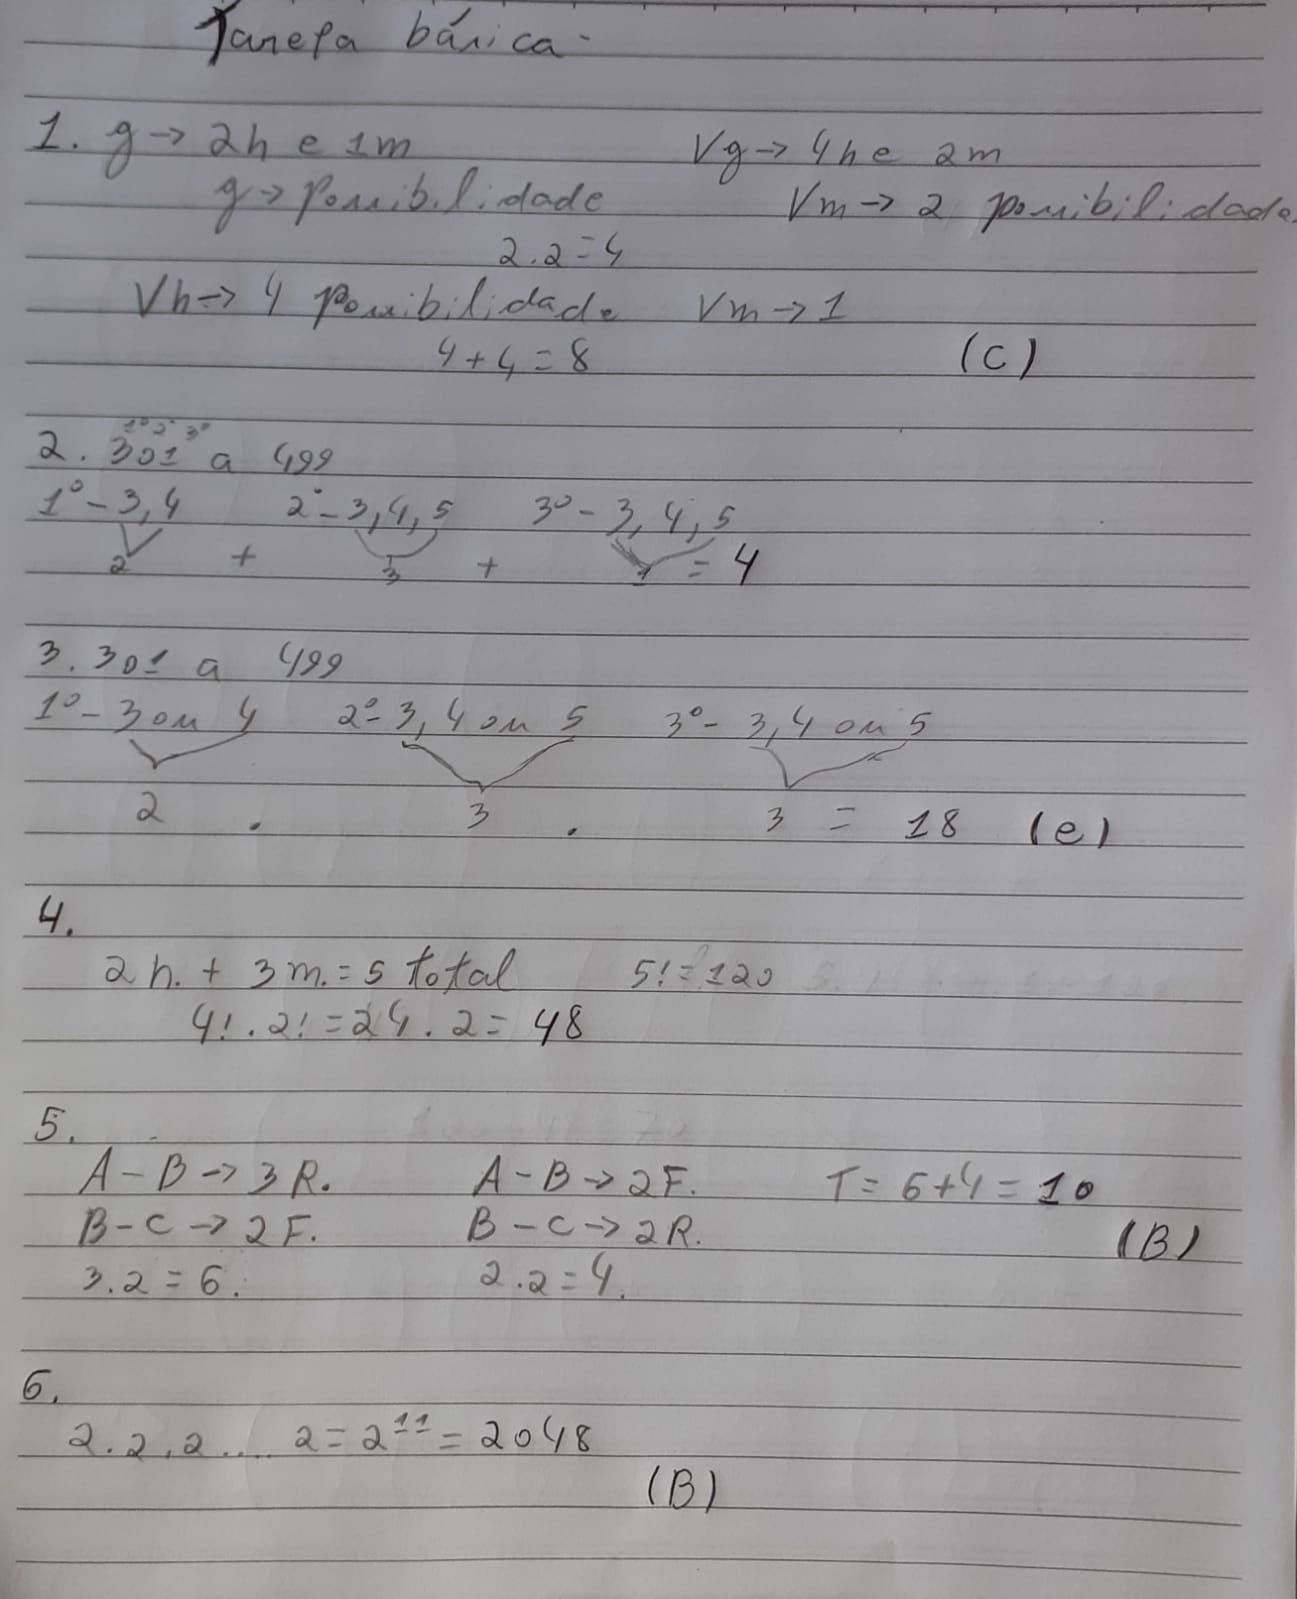 Tarefa básica.
1. g → 2h e 1m Vg → 4h e 2m
g → Possibilidade Vm → 2 possibilidade.
2.2=4
Vh → 4 possibilidade Vm → 1
4+4=8 (C)
1° 2° 3°
2. 301 a 499
1° - 3,4 2° - 3,4,5 3° - 3,4,5
2 + 3 + 1 = 4
3. 301 a 499
1° - 3 ou 4 2° - 3,4 ou 5 3° - 3,4 ou 5
2 . 3 . 3 = 18 (e)
4.
2h. + 3m. = 5 total 5! = 120
4! . 2! = 24 . 2 = 48
5.
A-B → 3R. A-B → 2F. T= 6+4=10
B-C → 2F. B-C → 2R. (B)
3.2=6. 2.2=4.
6.
2.2.2.... 2=2¹¹=2048
(B)